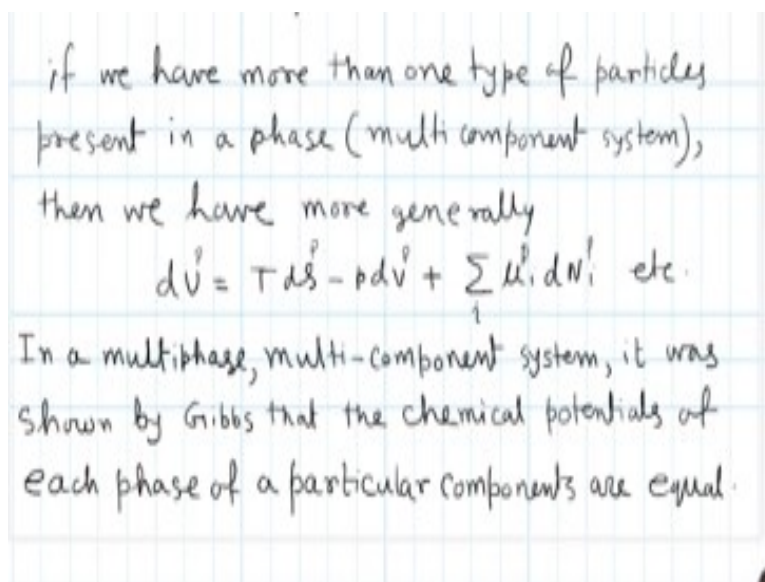 if we have more than one type of particles
present in a phase (multi component system),
then we have more generally
dUᵖ = T dSᵖ - p dVᵖ + Σᵢ μᵖᵢ dNᵖᵢ etc.
In a multiphase, multi-component system, it was
shown by Gibbs that the chemical potentials of
each phase of a particular components are equal.